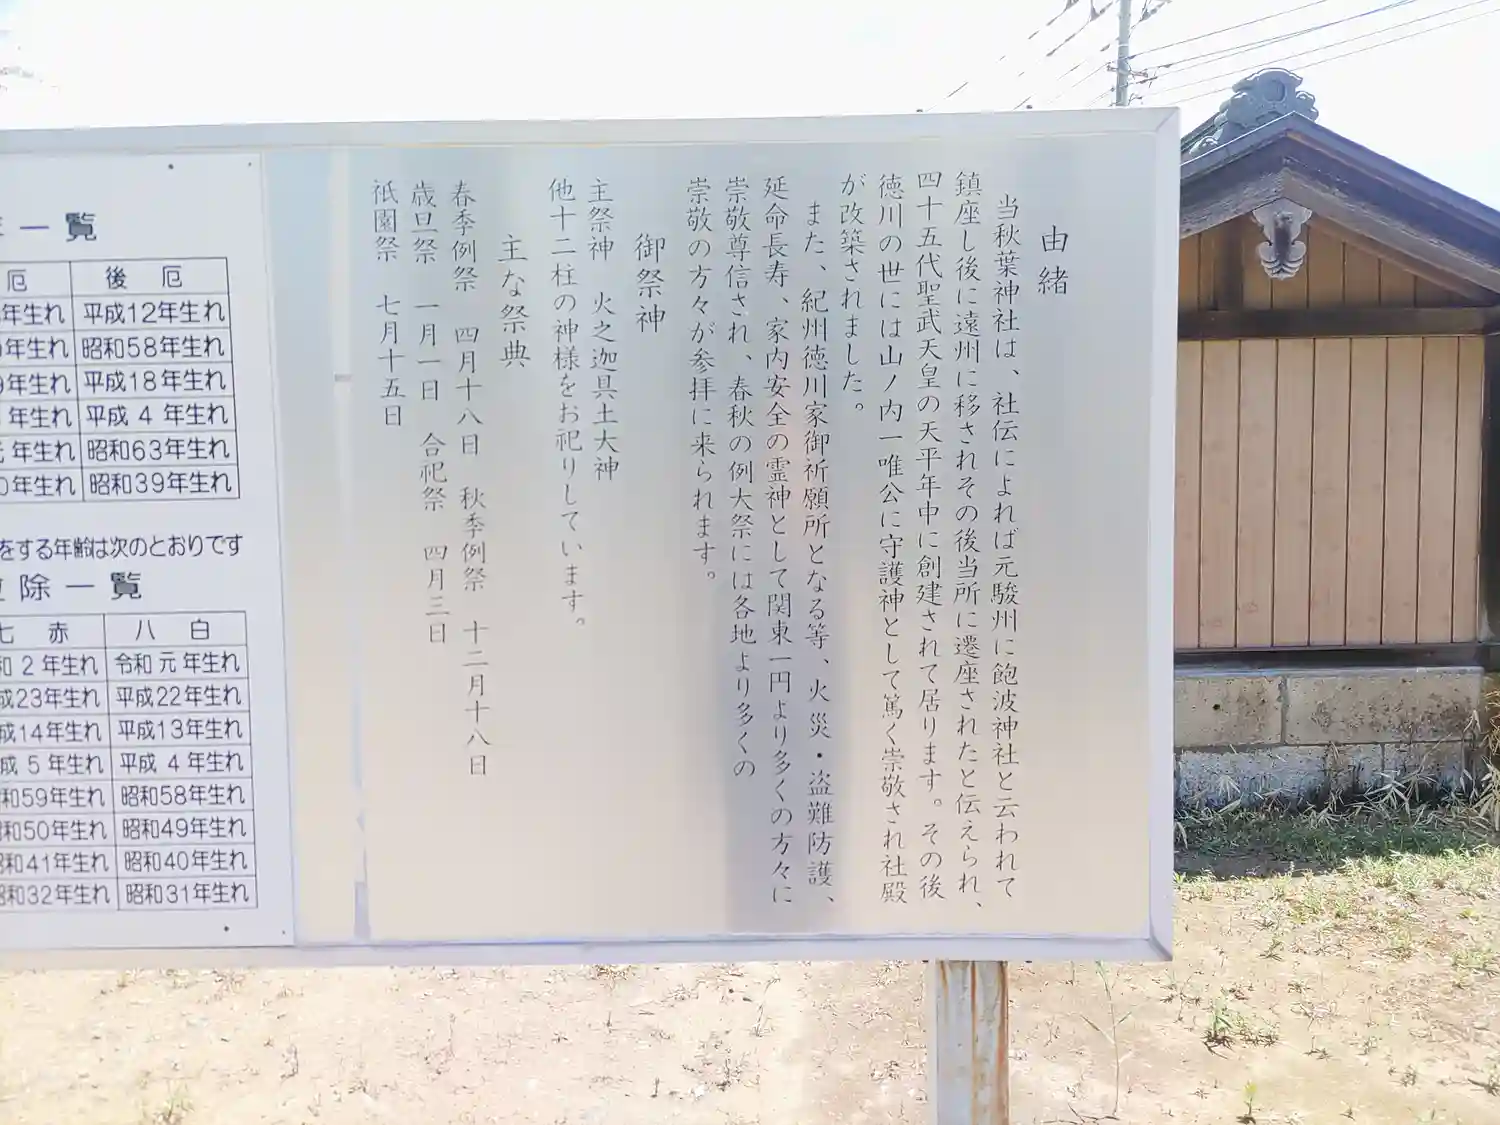 由緒
当秋葉神社は、社伝によれば元駿州に飽波神社と云われて
鎮座し後に遠州に移されその後当所に遷座されたと伝えられ、
四十五代聖武天皇の天平年中に創建されて居ります。その後
徳川の世には山ノ内一唯公に守護神として篤く崇敬され社殿
が改築されました。
また、紀州徳川家御祈願所となる等、火災・盗難防護、
延命長寿、家内安全の霊神として関東一円より多くの方々に
崇敬尊信され、春秋の例大祭には各地より多くの
崇敬の方々が参拝に来られます。
御祭神
主祭神 火之迦具土大神
他十二柱の神様をお祀りしています。
主な祭典
春季例祭 四月十八日 秋季例祭 十二月十八日
歳旦祭 一月一日 合祀祭 四月三日
祇園祭 七月十五日
一覧
厄 後厄
年生れ 平成12年生れ
年生れ 昭和58年生れ
9年生れ 平成18年生れ
年生れ 平成4年生れ
年生れ 昭和63年生れ
0年生れ 昭和39年生れ
をする年齢は次のとおりです
除一覧
七赤 八白
和2年生れ 令和元年生れ
成23年生れ 平成22年生れ
成14年生れ 平成13年生れ
成5年生れ 平成4年生れ
和59年生れ 昭和58年生れ
昭和50年生れ 昭和49年生れ
昭和41年生れ 昭和40年生れ
昭和32年生れ 昭和31年生れ